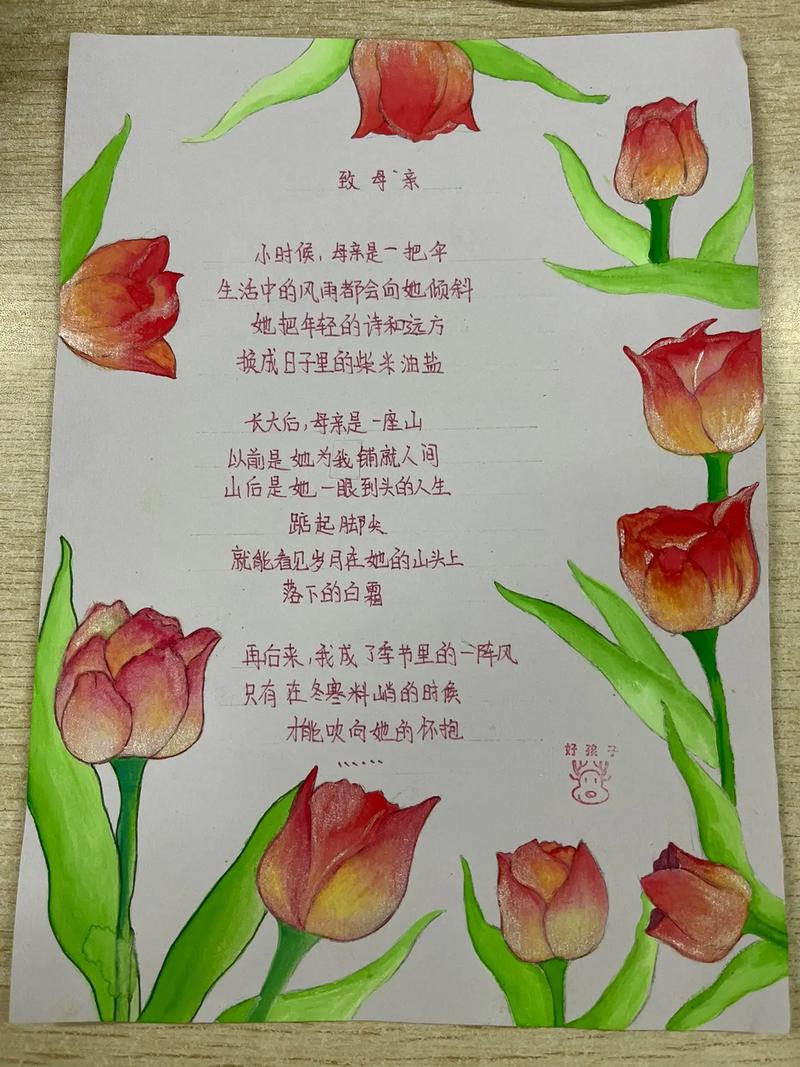 致 母亲
小时候，母亲是一把伞
生活中的风雨都会向她倾斜
她把年轻的诗和远方
换成日子里的柴米油盐
长大后，母亲是一座山
以前是她为我铺就人间
山后是她一眼到头的人生
踮起脚尖
就能看见岁月在她的山头上
落下的白霜
再后来，我成了季节里的一阵风
只有在冬寒料峭的时候
才能吹向她的怀抱
······
好孩子